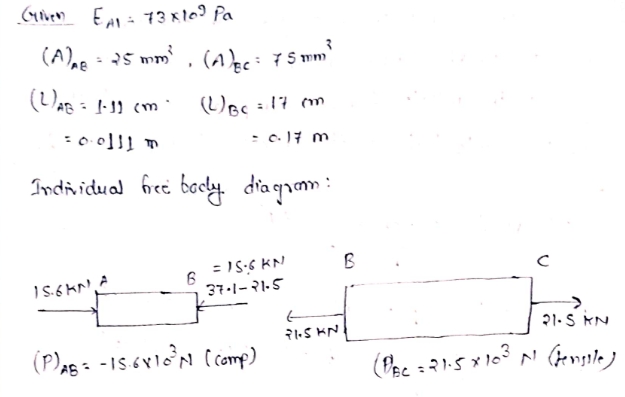 Given E_Al = 73 x 10⁹ Pa
(A)_AB = 25 mm², (A)_BC = 75 mm²
(L)_AB = 1.11 cm (L)_BC = 17 cm
= 0.0111 m = 0.17 m
Individual free body diagram:
= 15.6 KN
B C
15.6 KN A B 37.1-21.5
21.5 KN 21.5 KN
(P)_AB = -15.6x10³ N (comp) (P)_BC = 21.5 x 10³ N (tensile)